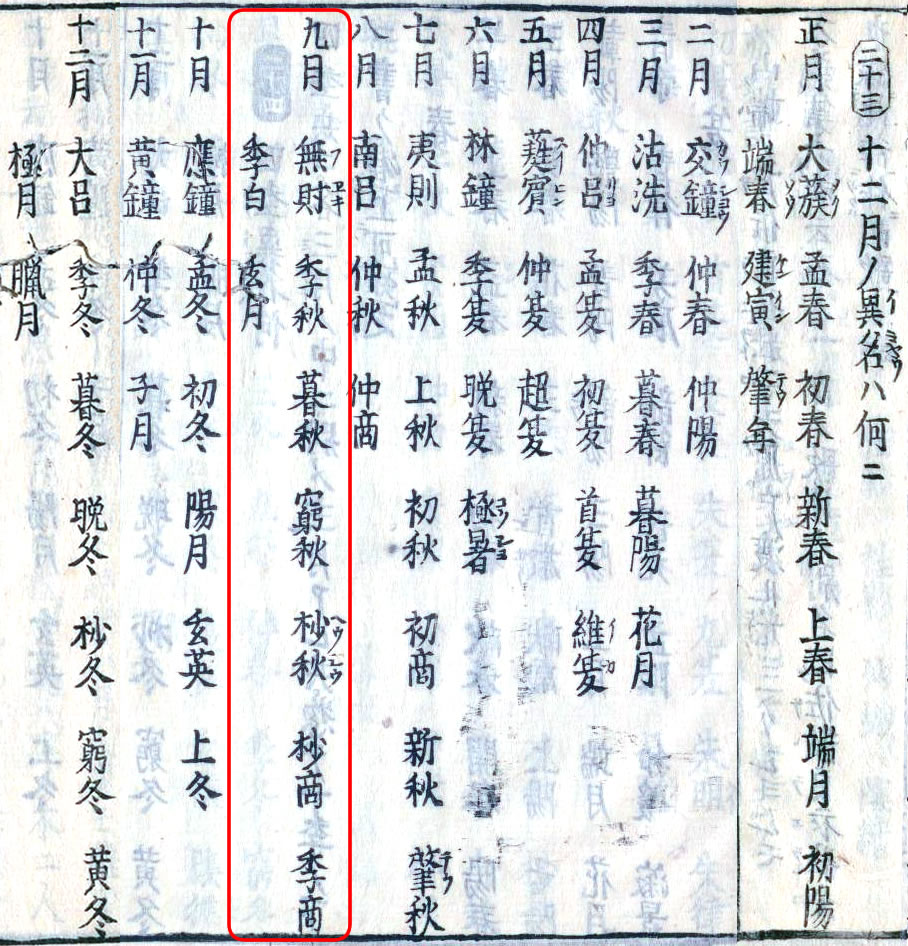 二十三 十二月ノ異名ハ何ニ イミヤウ
正月 大蔟 孟春 初春 新春 上春 端月 初陽
端春 建寅 肇年
二月 交鐘 仲春 仲陽
三月 沽洗 季春 暮春 暮陽 花月
四月 仲呂 孟夏 初夏 首夏 維夏
五月 蕤賓 仲夏 超夏
六月 林鐘 季夏 晩夏 極暑
七月 夷則 孟秋 上秋 初秋 初商 新秋 肇秋
八月 南呂 仲秋 仲商
九月 無財 季秋 暮秋 窮秋 杪秋 杪商 季商
季白 玄月
十月 應鐘 孟冬 初冬 陽月 玄英 上冬
十一月 黃鐘 仲冬 子月
十二月 大呂 季冬 暮冬 晩冬 杪冬 窮冬 黃冬
極月 臘月